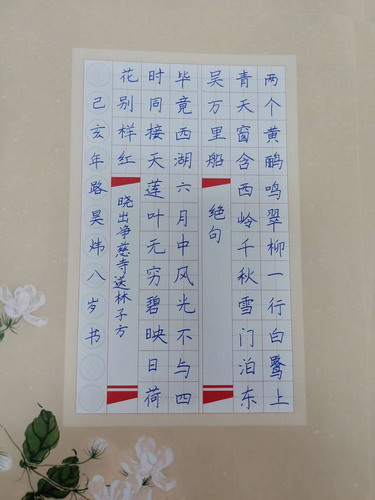 两个黄鹂鸣翠柳一行白鹭上
青天窗含西岭千秋雪门泊东
吴万里船
绝句
毕竟西湖六月中风光不与四
时同接天莲叶无穷碧映日荷
花别样红
晓出净慈寺送林子方
己亥年路昊炜八岁书